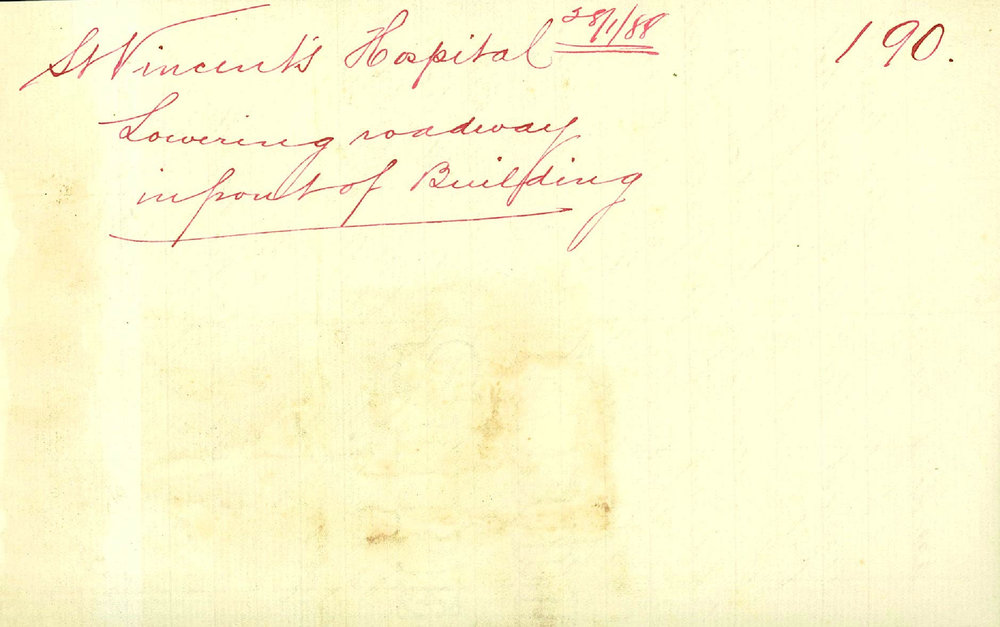 St Vincent's Hospital 28/1/88 190.
Lowering roadway
in front of Building